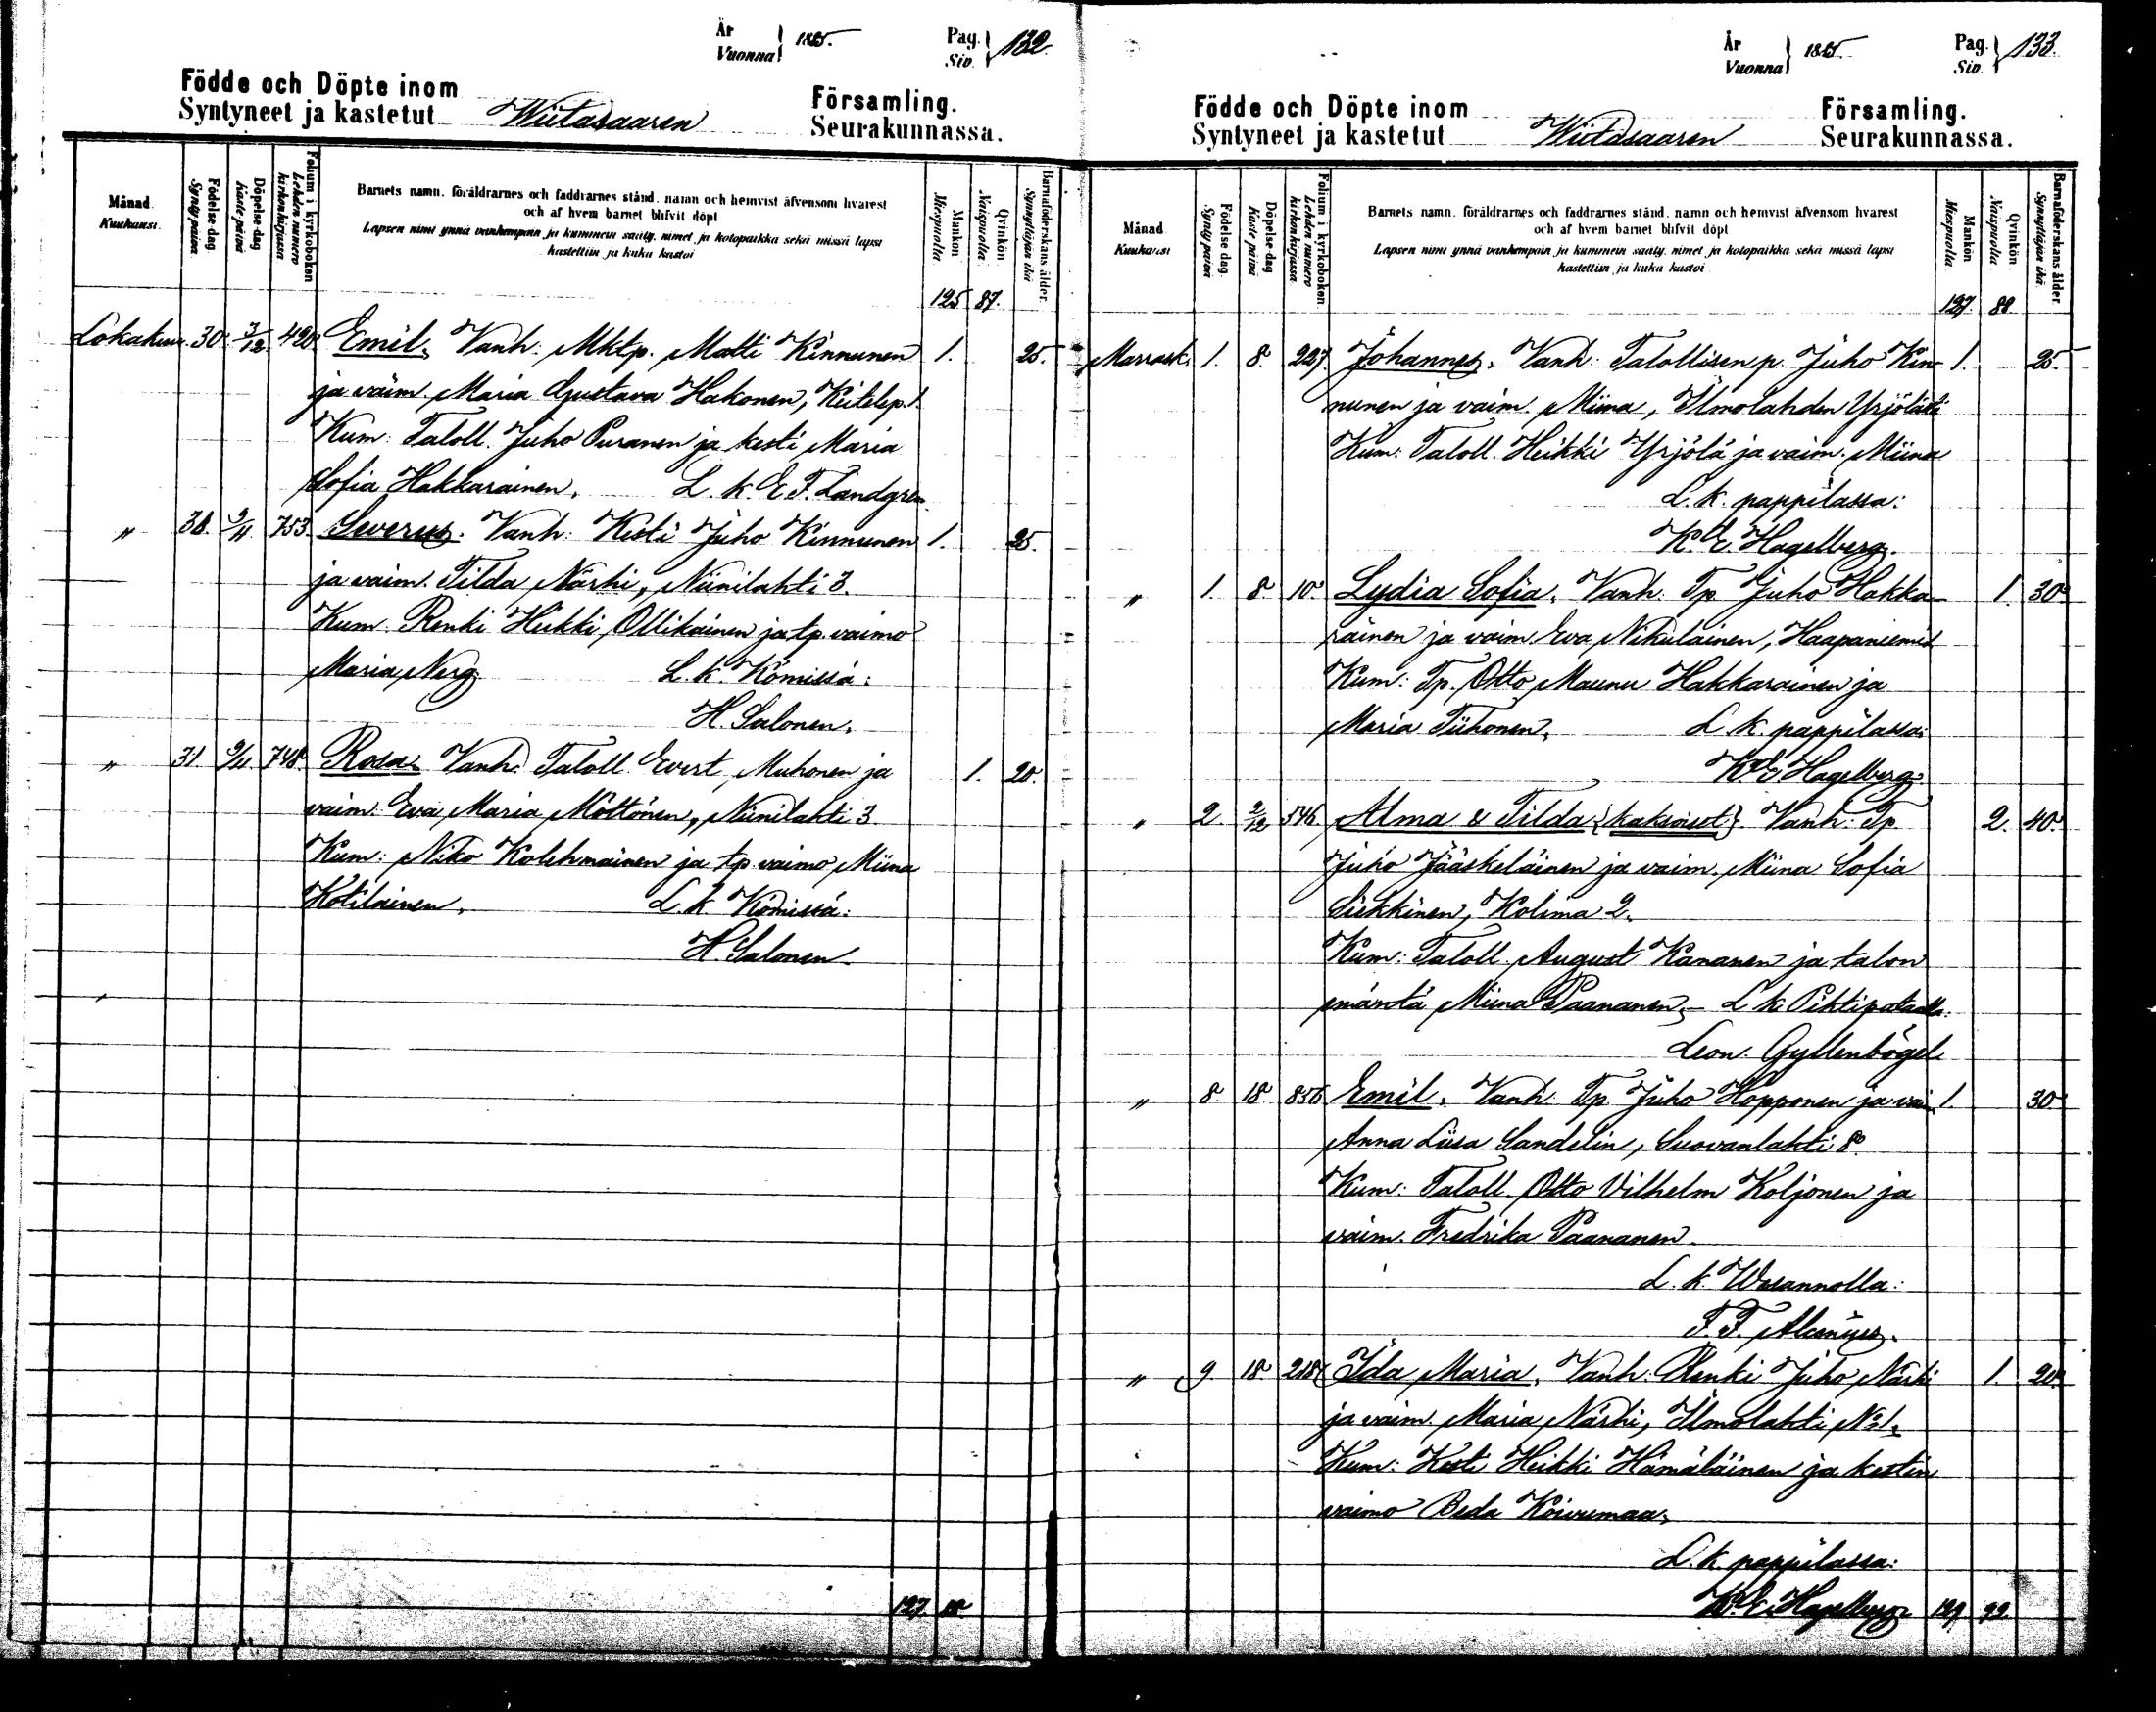 År
Vuonna } 1885.
Pag.
Siv. } 132.
Födde och Döpte inom
Syntyneet ja kastetut Wiitasaaren
Församling.
Seurakunnassa.
Månad
Kuukausi.
Födelse-dag
Syntypäivä
Döpelse-dag
Kaste-päivä
Folium i kyrkoboken
Lehden numero kirkonkirjassa
Barnets namn, föräldrarnes och faddrarnes stånd, namn och hemvist äfvensom hvarest
och af hvem barnet blifvit döpt
Lapsen nimi ynnä vanhempain ja kummein sääty, nimet ja kotopaikka sekä missä lapsi
kastettiin ja kuka kastoi
Mankön
Miespuolia
Qvinkön
Naispuolia
Barnaföderskans ålder.
Synnyttäjän ikä
125 87.
Lokakuu. 30. 3/12 420. Emil. Vanh: Mktp. Matti Kinnunen 1. 25.
ja vaim. Maria Gustava Hakonen, Keitelep. 1.
Kum: Taloll. Juho Puranen ja kesti Maria
Sofia Hakkarainen. L. k. E. F. Landgren
„ 31. 9/11 753. Severus. Vanh: Kesti Juho Kinnunen 1. 25.
ja vaim. Tilda Närhi, Niinilahti 3.
Kum. Renki Heikki Ollikainen ja tp. vaimo
Maria Nerg L. k. Kömissä:
H. Salonen.
„ 31. 9/11 748. Rosa. Vanh. Taloll. Evert Muhonen ja 1. 20.
vaim. Eva Maria Möttönen, Niinilahti 3.
Kum: Niko Kolehmainen ja tp. vaimo Miina
Kotilainen. L. k. Kömissä:
H. Salonen
127. 88
År
Vuonna } 1885.
Pag.
Siv. } 133.
Födde och Döpte inom
Syntyneet ja kastetut Wiitasaaren
Församling.
Seurakunnassa.
Månad
Kuukausi
Födelse dag.
Syntypäivä
Döpelse-dag
Kaste päivä
Folium i kyrkoboken
Lehden numero kirkonkirjassa
Barnets namn, föräldrarnes och faddrarnes stånd, namn och hemvist äfvensom hvarest
och af hvem barnet blifvit döpt
Lapsen nimi ynnä vanhempain ja kummein sääty, nimet ja kotopaikka sekä missä lapsi
kastettiin ja kuka kastoi
Mankön
Miespuolia
Qvinkön
Naispuolia
Barnaföderskans ålder.
Synnyttäjän ikä
127. 88
Marrask. 1. 8. 227. Johannes. Vanh: Talollisen p. Juho Kin- 1. 25
nunen ja vaim. Miina, Ilmolahden Yrjölästi
Kum: Taloll. Heikki Yrjölä ja vaim. Miina
L. k. pappilassa:
K. E. Hagelberg.
„ 1. 8. 10. Lydia Sofia. Vanh. Tp. Juho Hakka- 1. 30.
rainen ja vaim. Eva Nikulainen, Haapaniemi
Kum: Tp. Otto Maunu Hakkarainen ja
Maria Tiihonen. L. k. pappilassa:
K. E. Hagelberg.
„ 2. 2/12 546. Alma & Tilda {kaksoiset}. Vanh: Tp. 2. 40.
Juho Jääskeläinen ja vaim. Miina Sofia
Siekkinen, Kolima 2.
Kum: Taloll. August Kananen ja talon
emäntä Miina Paananen. L. k. Pihtiputaalla:
Leon. Gyllenbögel.
„ 8. 18. 856. Emil. Vanh. Tp. Juho Hopponen ja vaim. 1. 30.
Anna Liisa Sandelin, Suovanlahti 8.
Kum: Taloll. Otto Vilhelm Koljonen ja
vaim. Fredrika Paananen.
L. k. Wesannolla:
F. F. Alcenius.
„ 9 18. 218 Ida Maria. Vanh. Renki Juho Närhi 1. 20.
ja vaim. Maria Närhi, Ilmolahti №1.
Kum: Kesti Heikki Hämäläinen ja kestin
vaimo Beda Koivumaa.
L. k. pappilassa:
K. E. Hagelberg 129 92